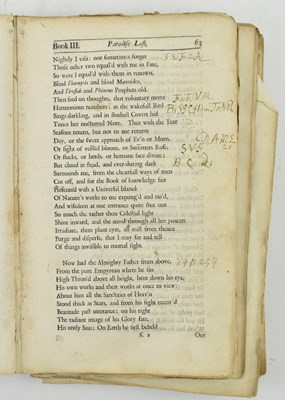 Book III. Paradise Lost, 63
Nightly I visit: nor sometimes forget
Those other two equal'd with me in Fate,
So were I equal'd with them in renown,
Blind Thamyris and blind Mæonides,
And Tiresias and Phineus Prophets old.
Then feed on thoughts, that voluntary move
Harmonious numbers; as the wakeful Bird
Sings darkling, and in shadiest Covert hid
Tunes her nocturnal Note. Thus with the Year
Seasons return, but not to me returns
Day, or the sweet approach of Ev'n or Morn,
Or sight of vernal bloom, or Summers Rose,
Or flocks, or herds, or humane face divine;
But cloud in stead, and ever-during dark
Surrounds me, from the chearful ways of men
Cut off, and for the Book of knowledge fair
Presented with a Universal blanck
Of Nature's works to me expung'd and ras'd,
And wisdom at one entrance quite shut out.
So much the rather thou Celestial light
Shine inward, and the mind through all her powers
Irradiate, there plant eyes, all mist from thence
Purge and disperse, that I may see and tell
Of things invisible to mortal sight.
Now had the Almighty Father from above,
From the pure Empyrean where he sits
High Thron'd above all highth, bent down his eye,
His own works and their works at once to view:
About him all the Sanctities of Heav'n
Stood thick as Stars, and from his sight receiv'd
Beatitude past utterance: on his right
The radiant image of his Glory sate,
His onely Son; On Earth he first beheld
K 2 Our